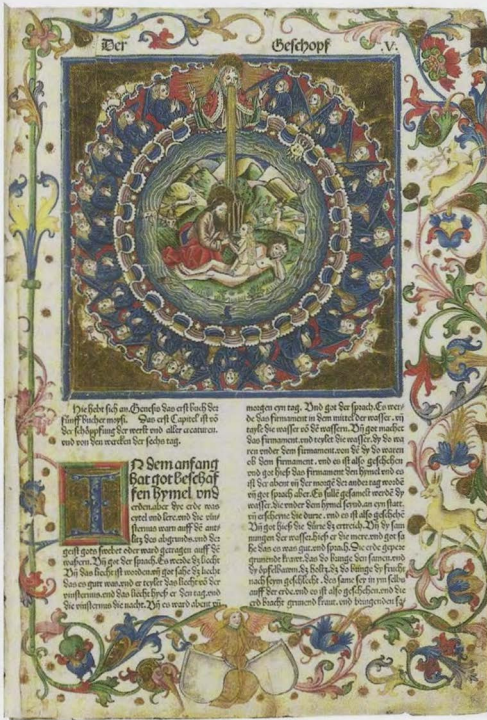 Der Geschopf .V.
Hie hebt sich an. Genesis das erst buch der
fünff bücher moysi. Das erst Capitel ist vō
der schöpffung der werlt vnd aller creaturen.
vnd von den wercken der sechs tag.
IN dem anfang
hat got beschaf
fen hymel vnd
erden. aber dye erde was
eytel vnd lere. vnd die vin
sternus warn auff dē antt
litz des abgrunds. vnd der
geist gots swebet oder ward getragen auff dē
wassern. Vñ got der sprach. Es werde dz liecht
Vñ das liecht ist worden. vñ got sahe dz liecht
das es gut was. vnd er teylet das liecht vō der
vinsternus. vnd das liecht hieß er den tag. vnd
die vinsternus die nacht. Vñ es ward abent vñ
morgen eyn tag. Vnd got der sprach. Es wer
de das firmament in dem mittel der wasser. vñ
teyle die wasser vō dē wassern. Vñ got machet
das firmament. vnd teylet die wasser. dy do wa
ren vnder dem firmament. von dē dy do waren
ob dem firmament. vnd es ist also geschehen
vnd got hieß das firmament den hymel vnd es
ist der abent vñ der morgē der ander tag wordē
vñ got sprach aber. Es sullē gesamelt werdē dy
wasser. die vnder dem hymel seynd an eyn statt.
vñ erscheyne die dürre. vnd es ist also geschehē
Vñ got hieß die dürre dz ertreich. Vñ dy sam
nungen der wasser. hieß er die mere. vnd got sa
he das es was gut. vnd sprach. Die erde gepere
grunend kraut. das do bringe den samen. vnd
dy öpfelbaum. dz holtz. dz do bringe dy frucht
nach seym geschlecht. des same sey in ym selbs
auff der erde. vnd es ist also geschehen. vnd die
erd bracht grunend kraut. vnd bringenden